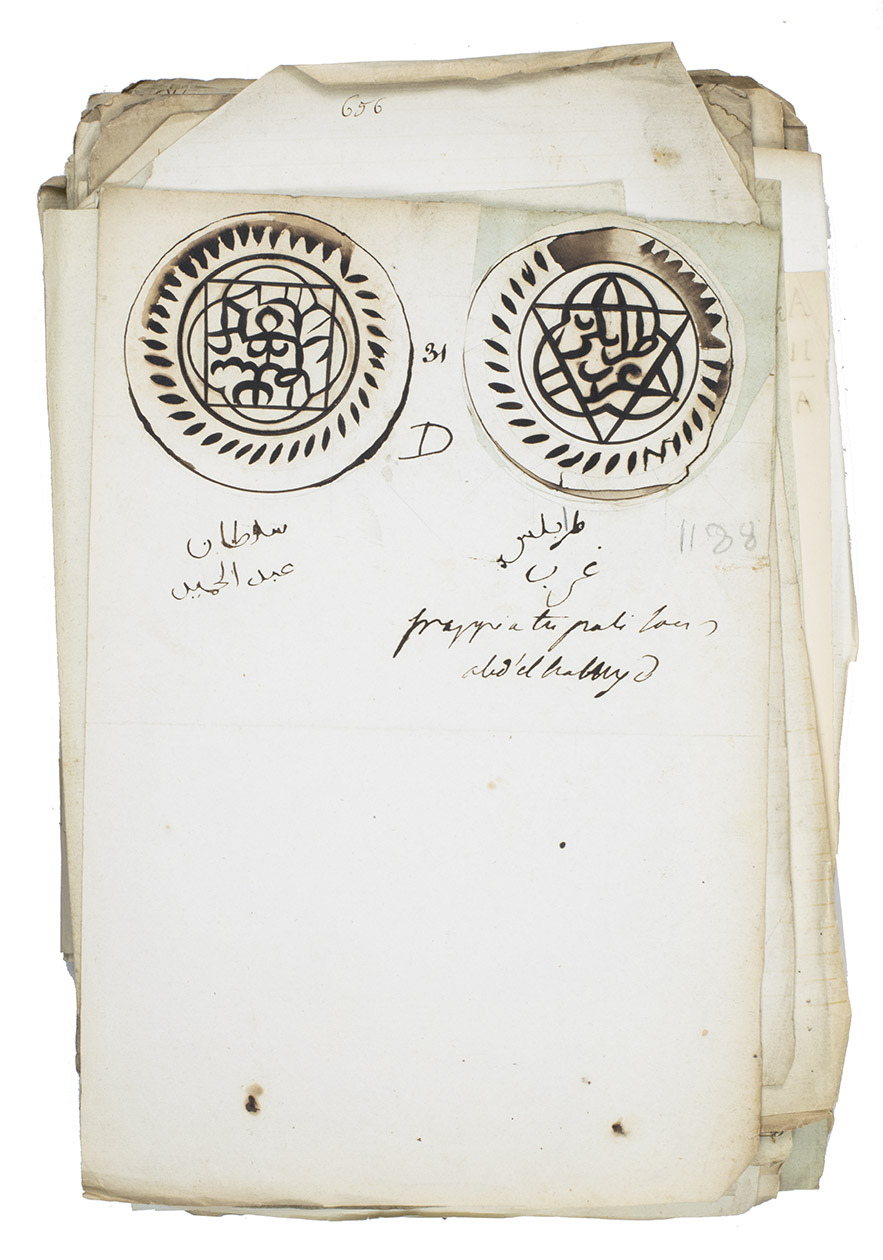 656
31
D
سلطان
عبد الحميد
طرابلس
غرب
1188
frappé a tripoli sous
abd'el hahmyd